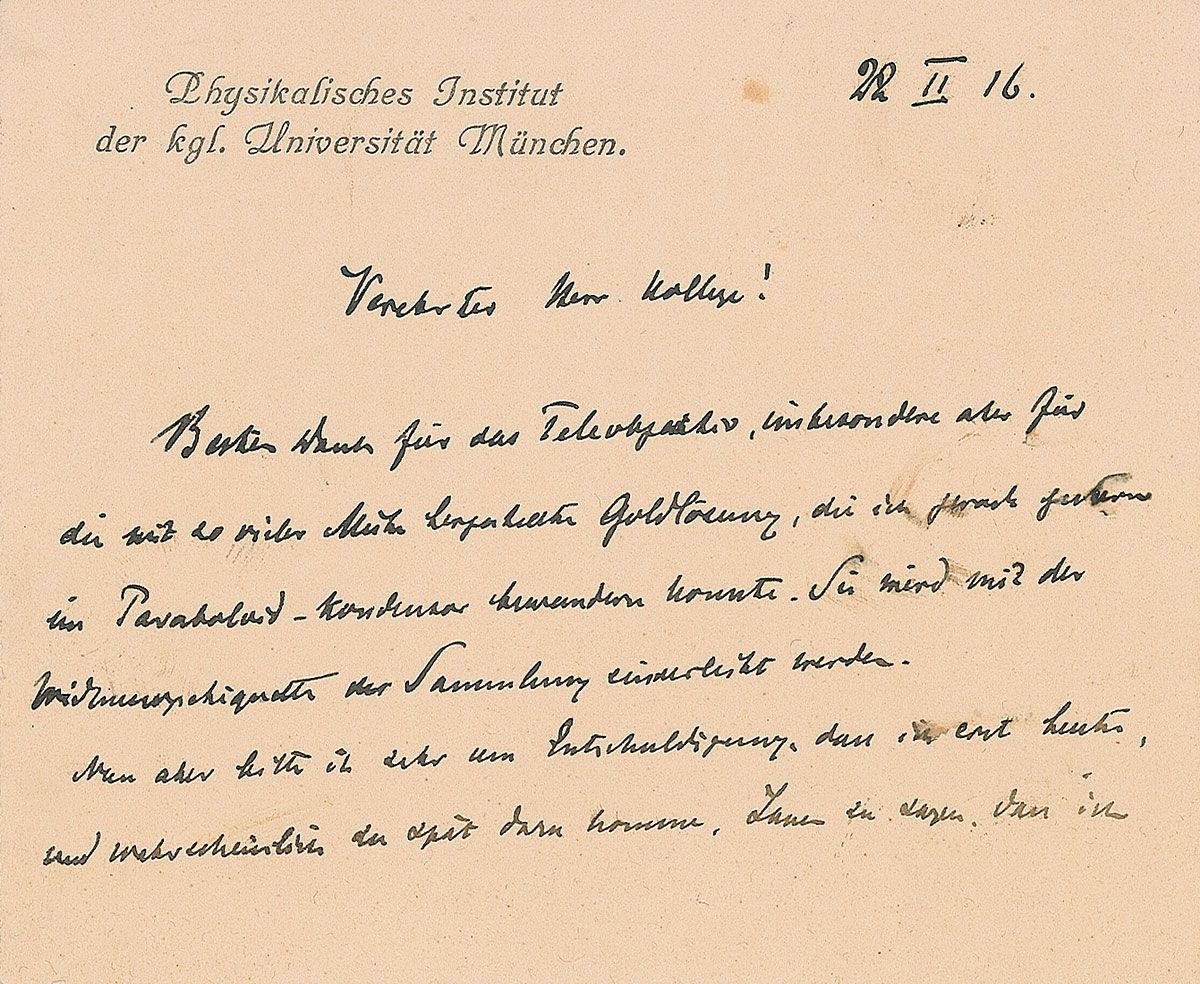 Physikalisches Institut
der kgl. Universität München.
22 II 16.
Verehrter Herr Kollege!
Besten Dank für das Teleobjektiv, insbesondere aber für
die mit so vieler Mühe hergestellte Goldlösung, die ich gerade gestern
im Paraboloid-Kondensor bewundern konnte. Sie wird mit der
Widmungsetiquette der Sammlung einverleibt werden.
Nun aber bitte ich sehr um Entschuldigung, dass ich erst heute,
und wahrscheinlich zu spät dazu komme, Ihnen zu sagen, dass ich